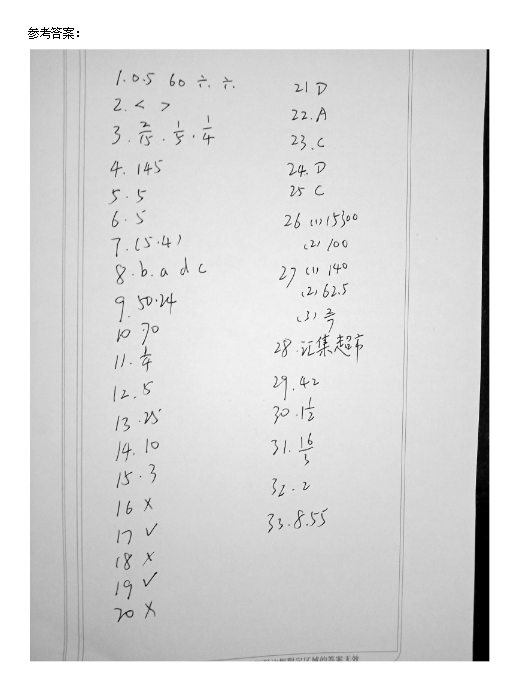 参考答案：
1. 0.5 60 六. 六.
2. < >
3. 2/15. 1/5. 1/4
4. 145
5. 5
6. 5
7. (5.4)
8. b. a d c
9. 50.24
10 70
11. 1/4
12. 5
13. 25
14. 10
15. 3
16 ×
17 ✓
18 ×
19 ✓
20 ×
21 D
22. A
23. C
24. D
25 C
26 (1) 15300
(2) 100
27 (1) 140
(2) 62.5
(3) 2/7
28. 汇集超市
29. 42
30. 1 1/2
31. 16/3
32. 2
33. 8.55